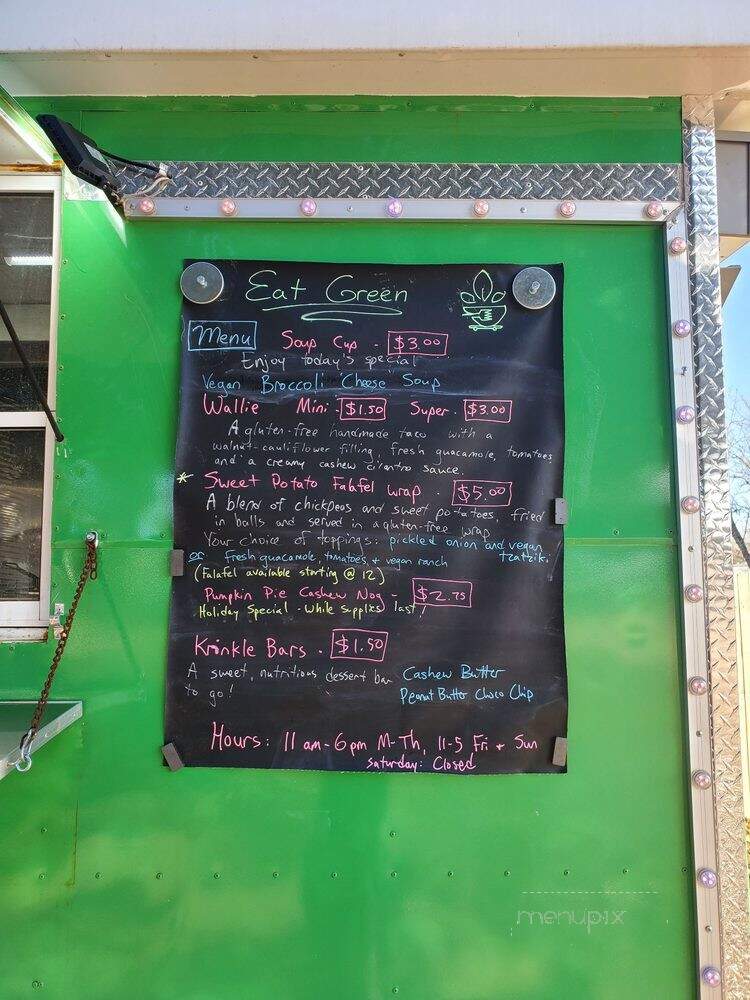 Eat Green
Menu Soup Cup - $3.00
Enjoy today's special
Vegan Broccoli "Cheese" Soup
Wallie Mini - $1.50 Super - $3.00
A gluten-free handmade taco with a
walnut-cauliflower filling, fresh guacamole, tomatoes,
and a creamy cashew cilantro sauce.
* Sweet Potato Falafel Wrap - $5.00
A blend of chickpeas and sweet potatoes, fried
in balls and served in a gluten-free wrap
Your choice of toppings: pickled onion and vegan
tzatziki
or fresh guacamole, tomatoes, + vegan ranch
(Falafel available starting @ 12)
Pumpkin Pie Cashew Nog - $2.75
Holiday Special - While Supplies last!
Krinkle Bars - $1.50
A sweet, nutritious dessert bar Cashew Butter
to go! Peanut Butter Choco Chip
Hours: 11 am - 6 pm M-Th, 11-5 Fri + Sun
Saturday: Closed
menupix